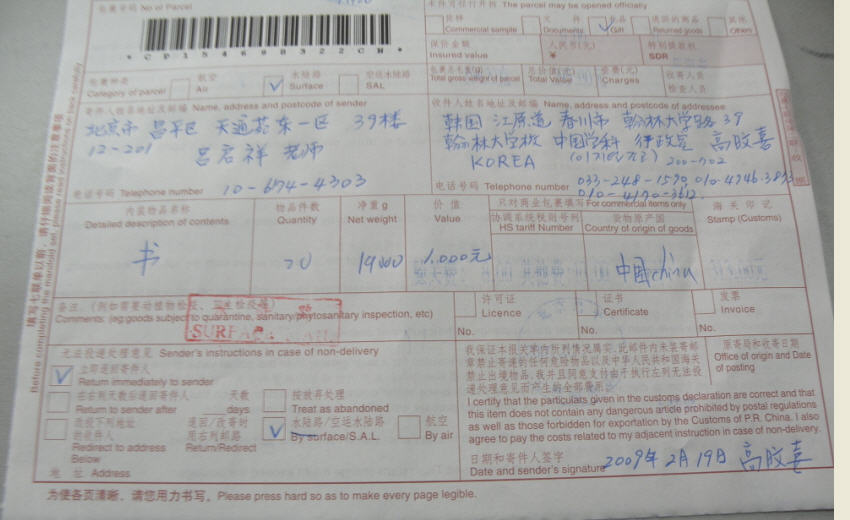 包裹号码 No of Parcel
* CP15469B322CN *
本件可径行开拆 The parcel may be opened officially
货样 Commercial sample
文件 Documents
礼品 Gift
退回的商品 Returned goods
其他 Others
保价金额 Insured value
人民币(元) ¥
特别提款权 SDR
包裹种类 Category of parcel
航空 Air
水陆路 Surface
空运水陆路 SAL
包裹总毛重(g) Total gross weight of parcel
总价值(元) Total Value
资费(元) Charges
收寄人员
检查人员
寄件人姓名地址及邮编 Name, address and postcode of sender
北京市 昌平区 天通苑东一区 39楼
12-201 吕君祥 老师
电话号码 Telephone number 10-674-4303
收件人姓名地址及邮编 Name, address and postcode of addressee
韩国 江原道 春川市 翰林大学路 39
翰林大学校 中国学科 行政室 高胶喜
KOREA 200-702
电话号码 Telephone number 033-248-1570
内装物品名称 Detailed description of contents
物品件数 Quantity
净重 g Net weight
价值 Value
只对商业包裹填写 For commercial items only
协调系统税则号列 HS tariff Number
货物原产国 Country of origin of goods
海关印记 Stamp (Customs)
书 20 1,000元 中国china
备注:(例如需要动植物检疫、卫生检疫等)
Comments: (eg:goods subject to quarantine, sanitary/phytosanitary inspection, etc)
许可证 Licence
No.
证书 Certificate
No.
发票 Invoice
No.
无法投递处理意见 Sender's instructions in case of non-delivery
立即退回寄件人 Return immediately to sender
在右列天数后退回寄件人 Return to sender after
天数 days
按放弃处理 Treat as abandoned
改投下列地址的收件人 Redirect to address Below
退回/改寄时按右列邮路 Return/Redirect
水陆路/空运水陆路 By surface/S.A.L.
航空 By air
地址 Address
我保证本报关单内所列情况属实,此邮件内未装寄邮
章禁止寄递的任何危险物品以及中华人民共和国海关
禁止出境物品,我并且同意支付由于执行左列无法投
递处理意见而产生的全部费用。
I certify that the particulars given in the customs declaration are correct and that
this item does not contain any dangerous article prohibited by postal regulations
as well as those forbidden for exportation by the Customs of P.R. China. I also
agree to pay the costs related to my adjacent instruction in case of non-delivery.
原寄局和收寄日期
Office of origin and Date of posting
日期和寄件人签字
Date and sender's signature 2009年 2月 19日 高胶喜
为使各页清晰,请您用力书写。Please press hard so as to make every page legible.